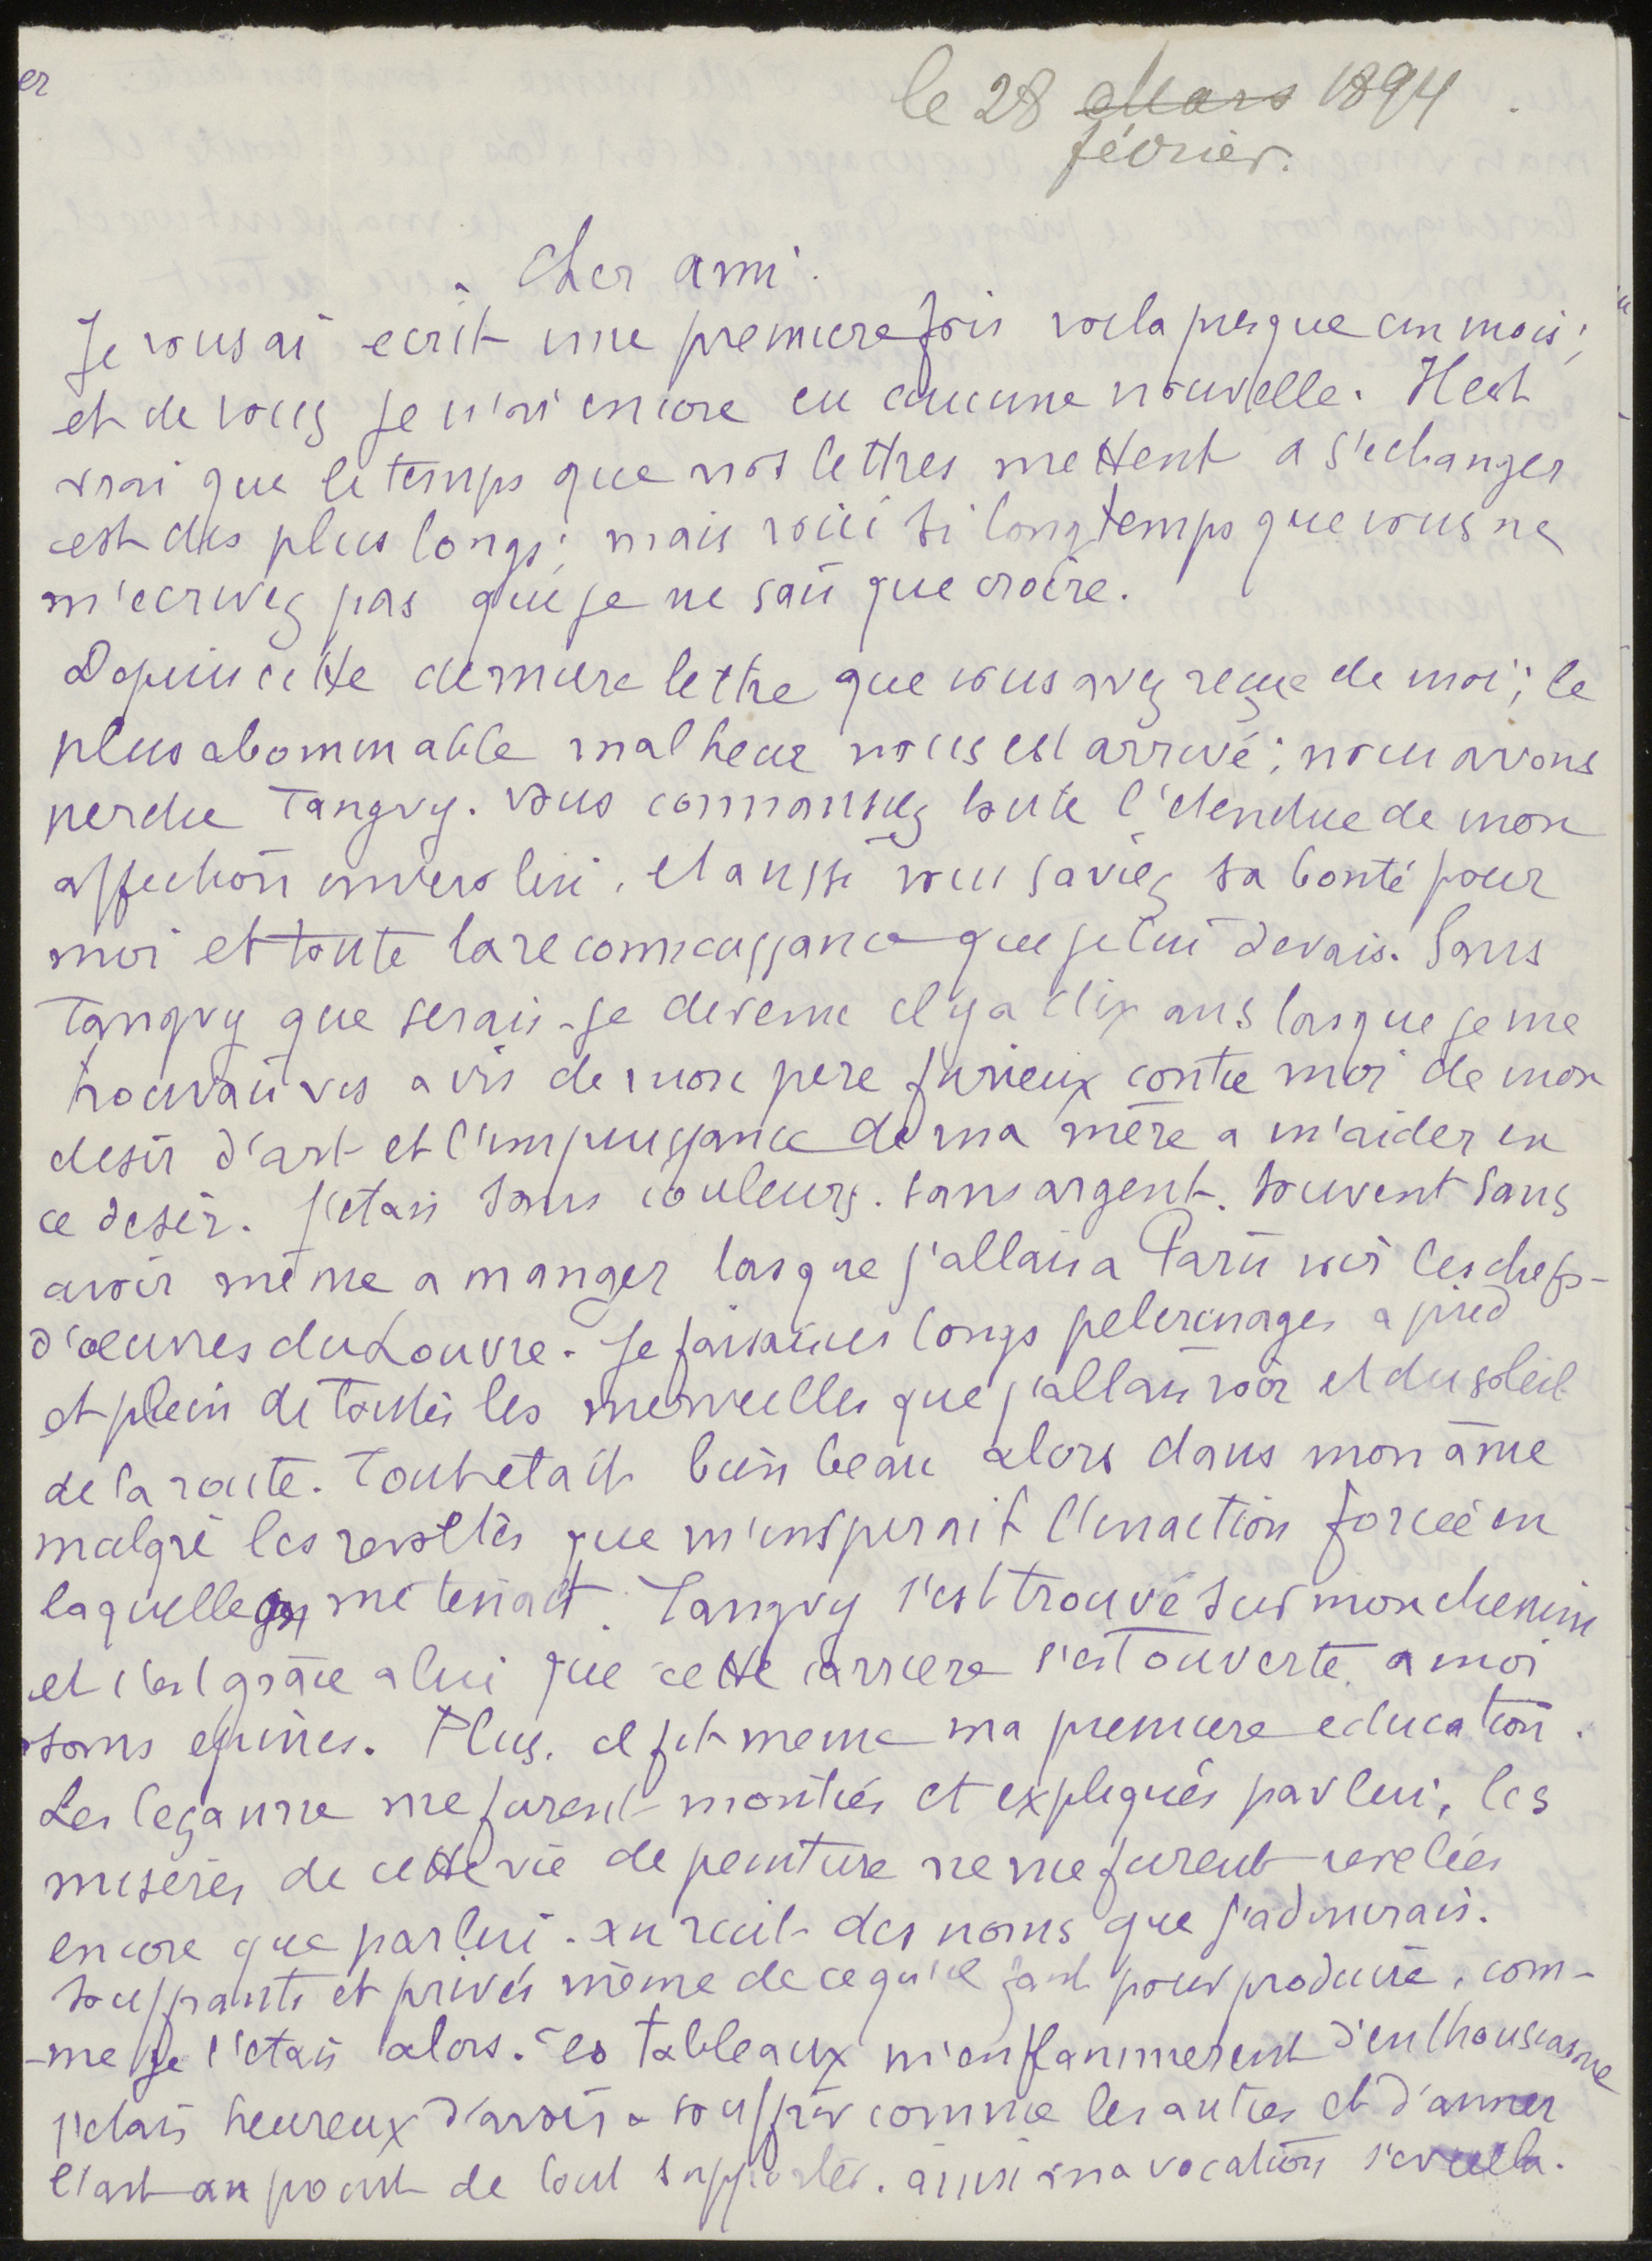 er
le 28 Mars 1894
février.
Cher ami.
Je vous ai ecrit une premiere fois voila presque un mois;
et de vous je n'ai encore eu aucune nouvelle. Il est
vrai que le temps que nos lettres mettent a s'echanger
est des plus longs; mais voici si longtemps que vous ne
m'ecrivez pas que je ne sais que croire.
Depuis cette derniere lettre que vous avez reçue de moi; le
plus abominable malheur nous est arrivé; nous avons
perdu Tanguy. Vous connaissiez toute l'étendue de mon
affection envers lui, et aussi vous saviez sa bonté pour
moi et toute la reconnaissance que je lui devais. Sans
Tanguy que serais-je devenu il y a dix ans lorsque je me
trouvais vis a vis de mon pere furieux contre moi de mon
desir d'art et l'impuissance de ma mère a m'aider en
ce desir. J'etais sans couleurs. sans argent. souvent sans
avoir même a manger lorsque j'allais a Paris voir les chefs-
d'œuvres du Louvre. Je faisais les longs pelerinages a pied
et plein de toutes les merveilles que j'allais voir et du soleil
de la route. Tout etait bien beau alors dans mon âme
malgré les revoltes que m'inspirait l'inaction forcée en
laquelle on me tenait. Tanguy s'est trouvé sur mon chemin
et c'est grâce a lui que cette carriere s'est ouverte a moi
sans epines. Plus, il fit meme ma premiere education.
Les Cezanne me furent montrés et expliqués par lui, les
misères de cette vie de peinture ne me furent revelées
encore que par lui. au recit des noms que j'admirais.
souffrants et privés même de ce qu'il faut pour produire, com-
-me je l'etais alors. les tableaux m'enflammerent d'enthousiasme
j'etais heureux d'avoir a souffrir comme les autres et d'aimer
l'art au point de tout supporter. ainsi ma vocation s'eveilla.